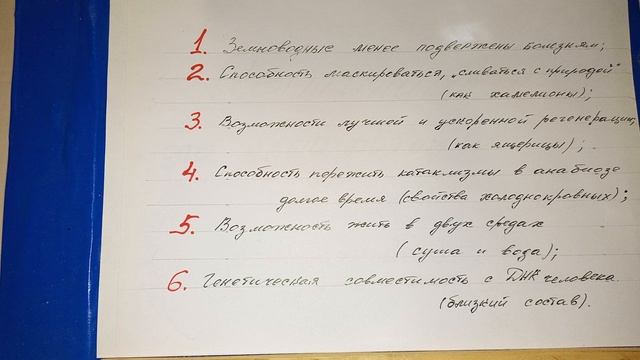 1. Земноводные менее подвержены болезням;
2. Способность маскироваться, „сливаться с природой"
(как хамелионы);
3. Возможности лучшой и ускоренной регенерации
(как ящерицы);
4. Способность пережить катаклизмы в анабиозе
долгое время (свойства холоднокровных);
5. Возможность жить в двух средах
(суша и вода);
6. Генетическая совместимость с ДНК человека.
(близкий состав).